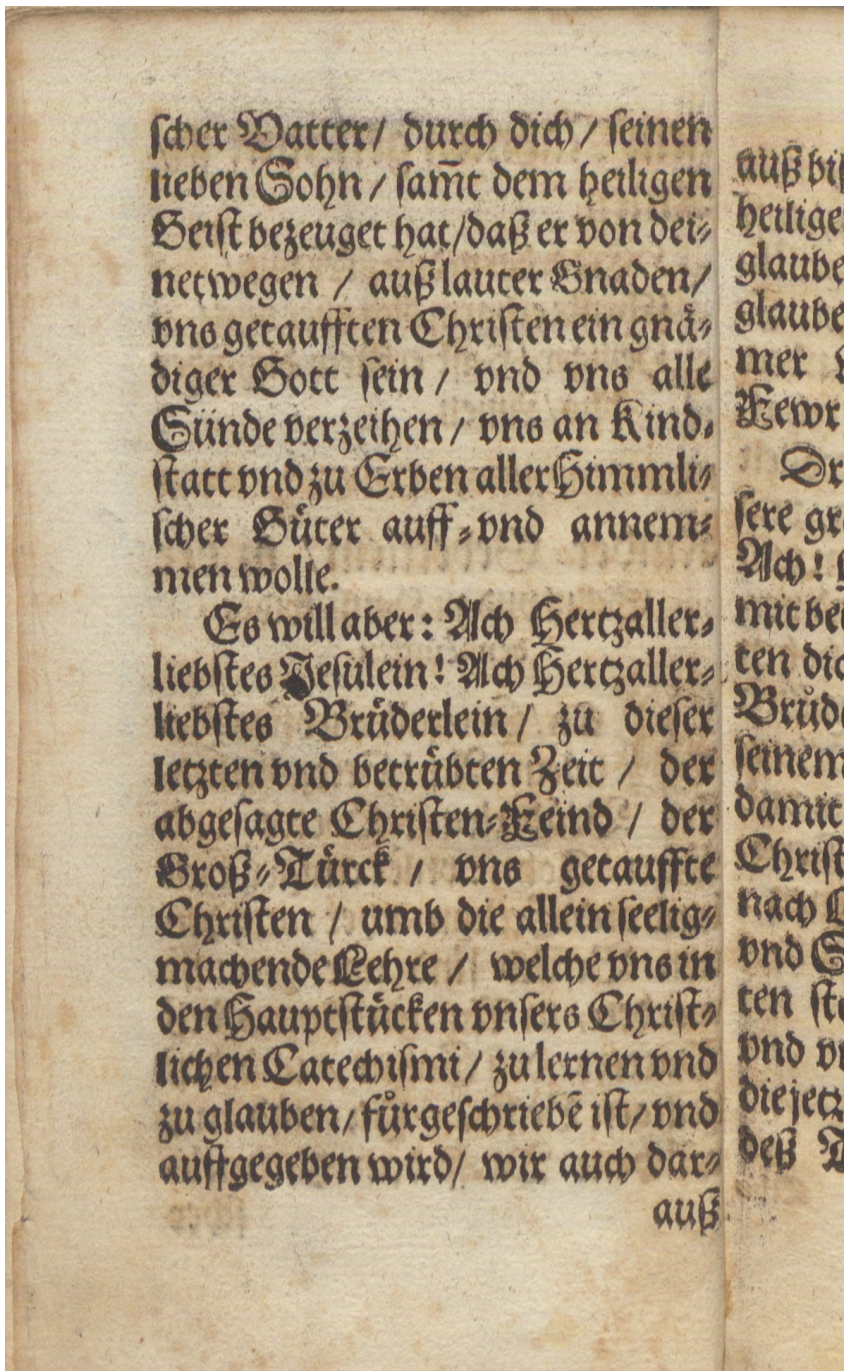 scher Vatter/ durch dich/ seinen
lieben Sohn/ sam̃t dem heiligen
Geist bezeuget hat/daß er von dei-
netwegen / auß lauter Gnaden/
vns getaufften Christen ein gnä-
diger Gott sein/ vnd vns alle
Sünde verzeihen/ vns an Kind-
statt vnd zu Erben aller Himmli-
scher Güter auff-vnd annem-
men wolle.
Es will aber: Ach Hertzaller-
liebstes Jesulein! Ach Hertzaller-
liebstes Brüderlein/ zu dieser
letzten vnd betrübten Zeit / der
abgesagte Christen-Feind / der
Groß-Türck / vns getauffte
Christen / umb die allein seelig-
machende Lehre / welche vns in
den Hauptstücken vnsers Christ-
lichen Catechismi/ zu lernen vnd
zu glauben/ fůrgeschriebẽ ist/ vnd
auffgegeben wird/ wir auch dar-
auß
auß
heilige
glaube
glaube
mer
Fewr
sere
Ach!
mit
ten
seinem
damit
Christ
nach
vnd
ten
vnd
die jetz
deß